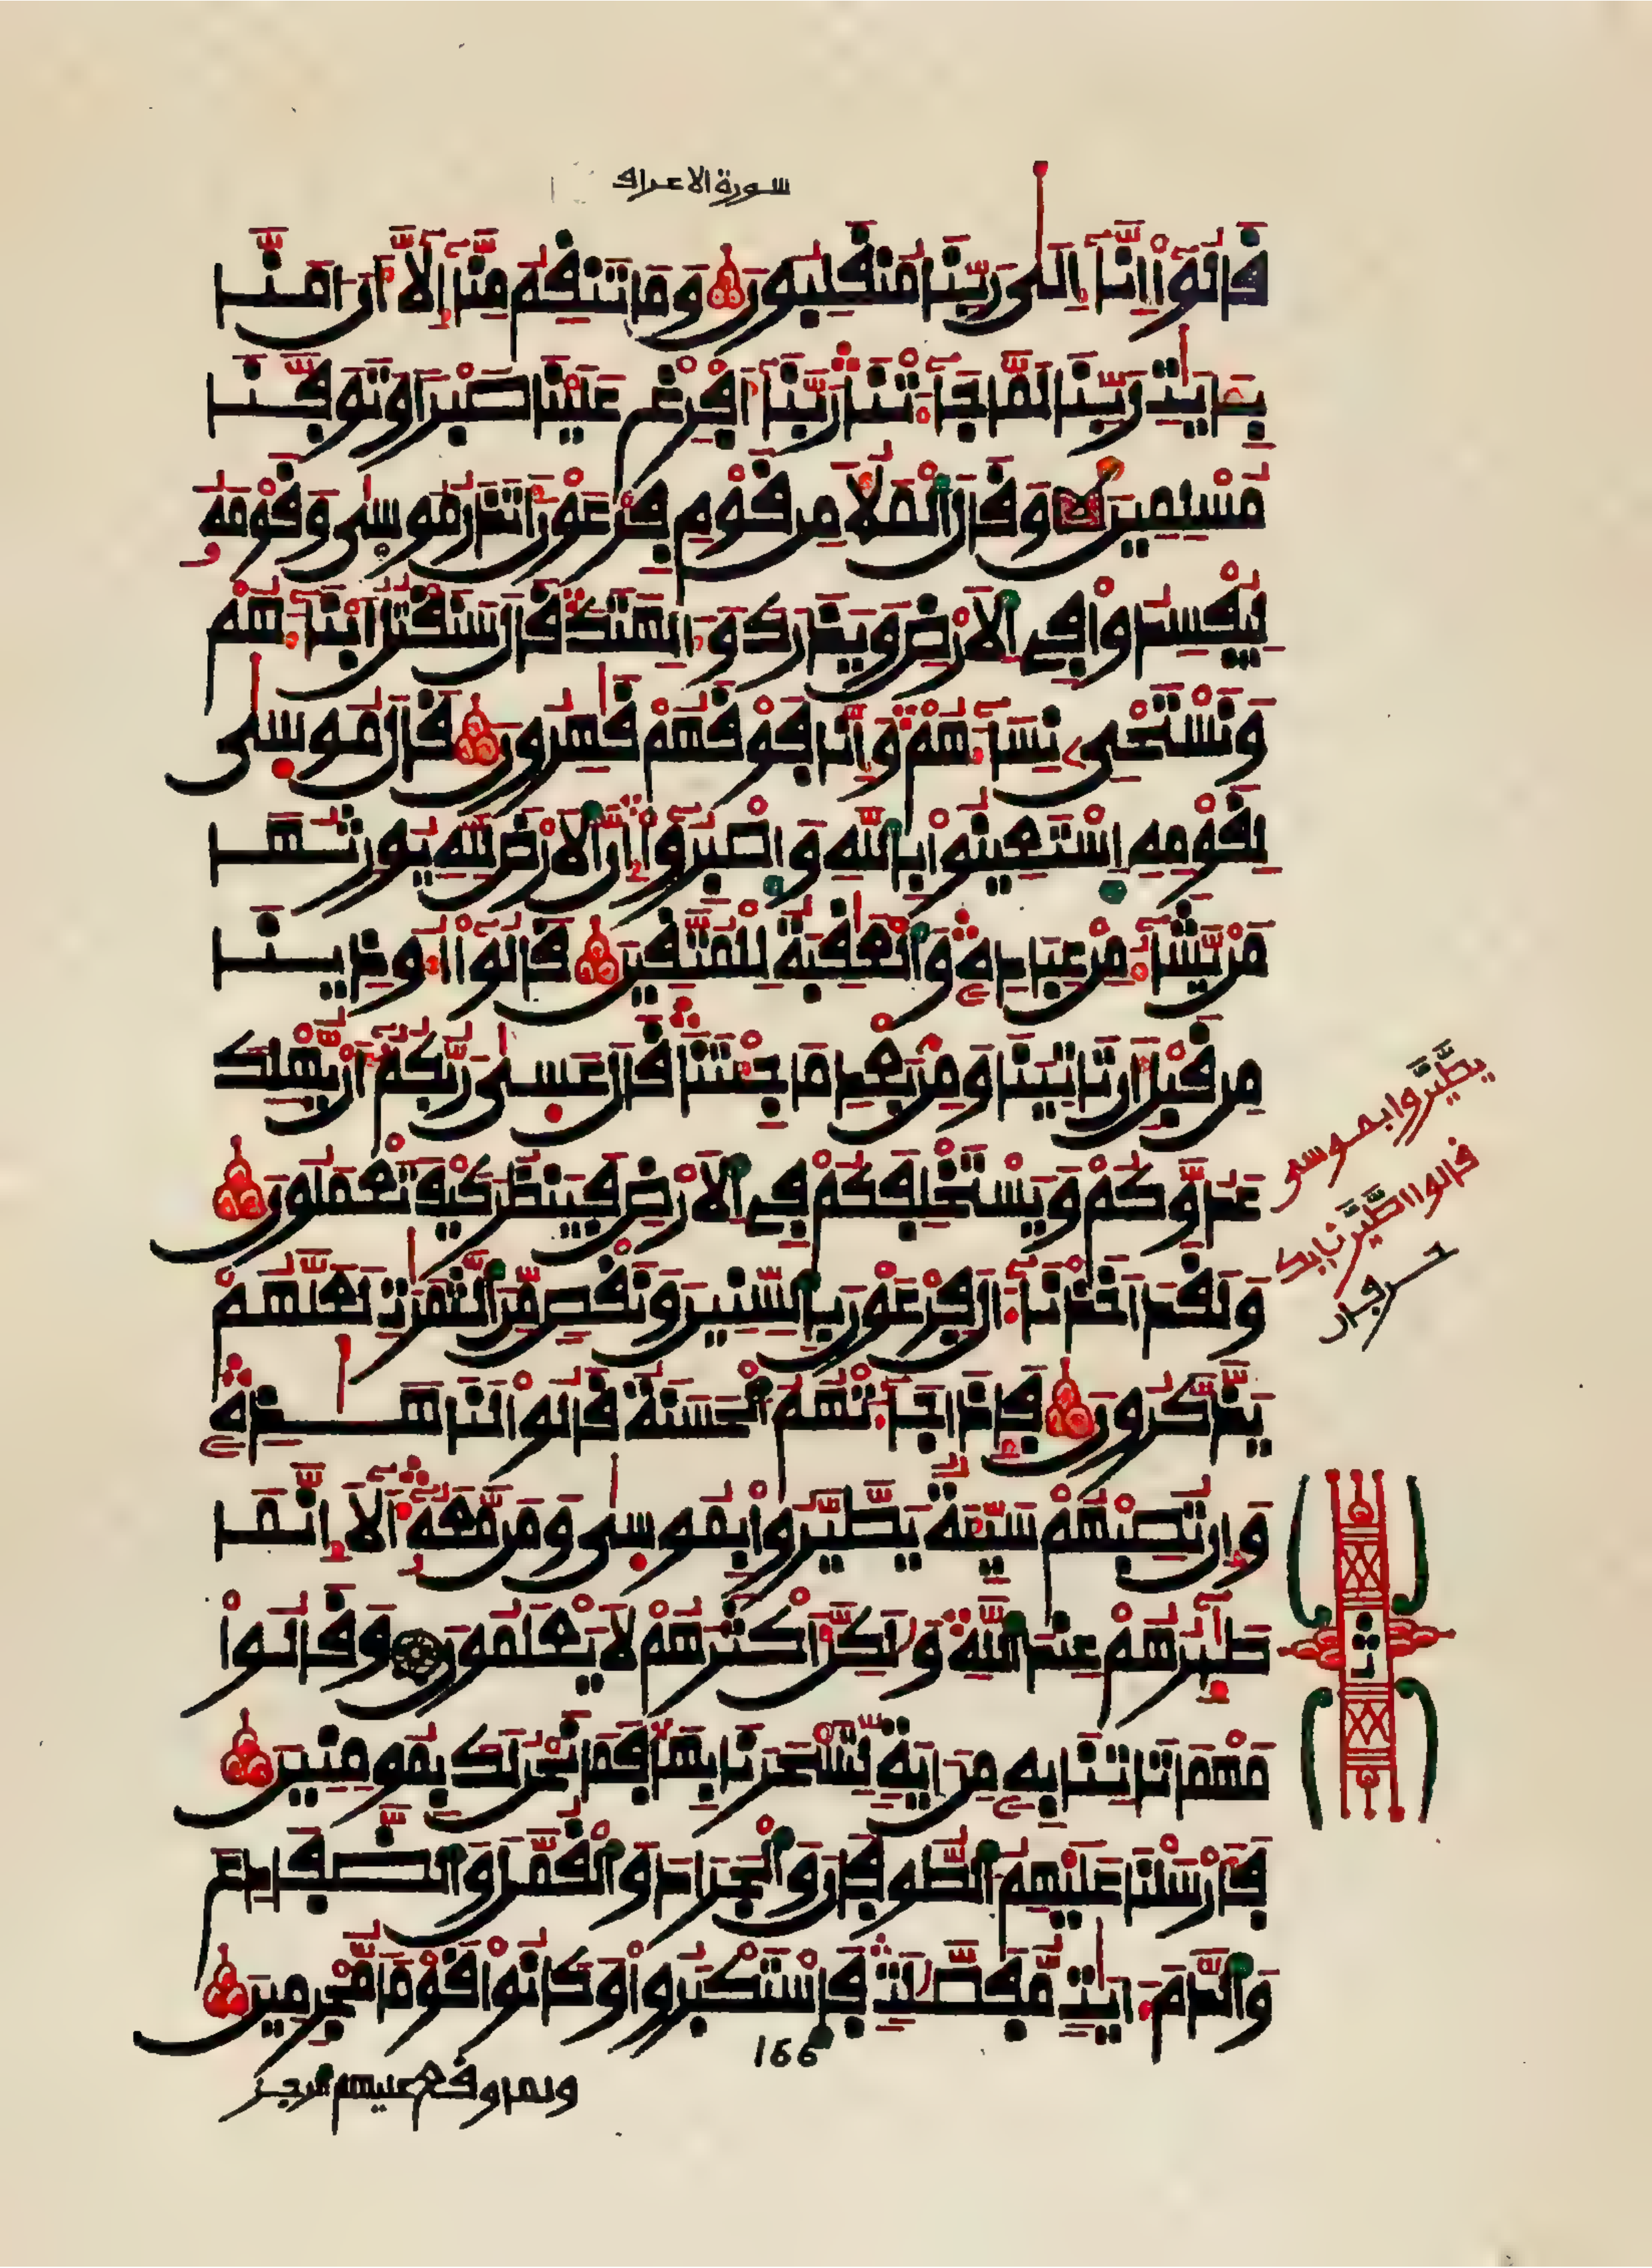 سورة الاعراف
قَالُوٓاْ إِنَّآ إِلَىٰ رَبِّنَا مُنقَلِبُونَ وَمَا تَنقِمُ مِنَّآ إِلَّآ أَنَ اٰمَنَّا
بِـَٔايَٰتِ رَبِّنَا لَمَّا جَآءَتْنَا رَبَّنَآ أَفْرِغْ عَلَيْنَا صَبْرًا وَتَوَفَّنَا
مُسْلِمِينَ وَقَالَ ٱلْمَلَأُ مِن قَوْمِ فِرْعَوْنَ أَتَذَرُ مُوسَىٰ وَقَوْمَهُۥ
لِيُفْسِدُواْ فِى ٱلَارْضِ وَيَذَرَكَ وَءَالِهَتَكَ قَالَ سَنَقْتُلُ أَبْنَآءَهُمْ
وَنَسْتَحْىِۦ نِسَآءَهُمْ وَإِنَّا فَوْقَهُمْ قَٰهِرُونَ قَالَ مُوسَىٰ
لِقَوْمِهِ ٱسْتَعِينُواْ بِٱللَّهِ وَٱصْبِرُوٓاْ إِنَّ ٱلَارْضَ لِلَّهِ يُورِثُهَا
مَنْ يَّشَآءُ مِنْ عِبَادِهِۦ وَٱلْعَٰقِبَةُ لِلْمُتَّقِينَ قَالُوٓاْ أُوذِينَا
مِن قَبْلِ أَن تَاتِيَنَا وَمِنۢ بَعْدِ مَا جِئْتَنَا قَالَ عَسَىٰ رَبُّكُمُۥٓ أَنْ يُّهْلِكَ
عَدُوَّكُمْ وَيَسْتَخْلِفَكُمْ فِى ٱلَارْضِ فَيَنظُرَ كَيْفَ تَعْمَلُونَ
وَلَقَدَ اَخَذْنَآ ءَالَ فِرْعَوْنَ بِٱلسِّنِينَ وَنَقْصٍ مِّنَ ٱلثَّمَرَٰتِ لَعَلَّهُمْ
يَذَّكَّرُونَ فَإِذَا جَآءَتْهُمُ ٱلْحَسَنَةُ قَالُواْ لَنَا هَٰذِهِۦ
وَإِن تُصِبْهُمْ سَيِّئَةٌ يَطَّيَّرُواْ بِمُوسَىٰ وَمَن مَّعَهُۥٓ أَلَآ إِنَّمَا
طَٰٓئِرُهُمْ عِندَ ٱللَّهِ وَلَٰكِنَّ أَكْثَرَهُمْ لَا يَعْلَمُونَ وَقَالُواْ
مَهْمَا تَاتِنَا بِهِۦ مِنَ اٰيَةٍ لِّتَسْحَرَنَا بِهَا فَمَا نَحْنُ لَكَ بِمُومِنِينَ
فَأَرْسَلْنَا عَلَيْهِمُ ٱلطُّوفَانَ وَٱلْجَرَادَ وَٱلْقُمَّلَ وَٱلضَّفَادِعَ
وَٱلدَّمَ ءَايَٰتٍ مُّفَصَّلَٰتٍ فَٱسْتَكْبَرُواْ وَكَانُواْ قَوْمًا مُّجْرِمِينَ
166
ولما وقع عليهم الرجز
يطّيّروا بموسى
قالوا اطّيّرنا بك
حرفان
ثمن